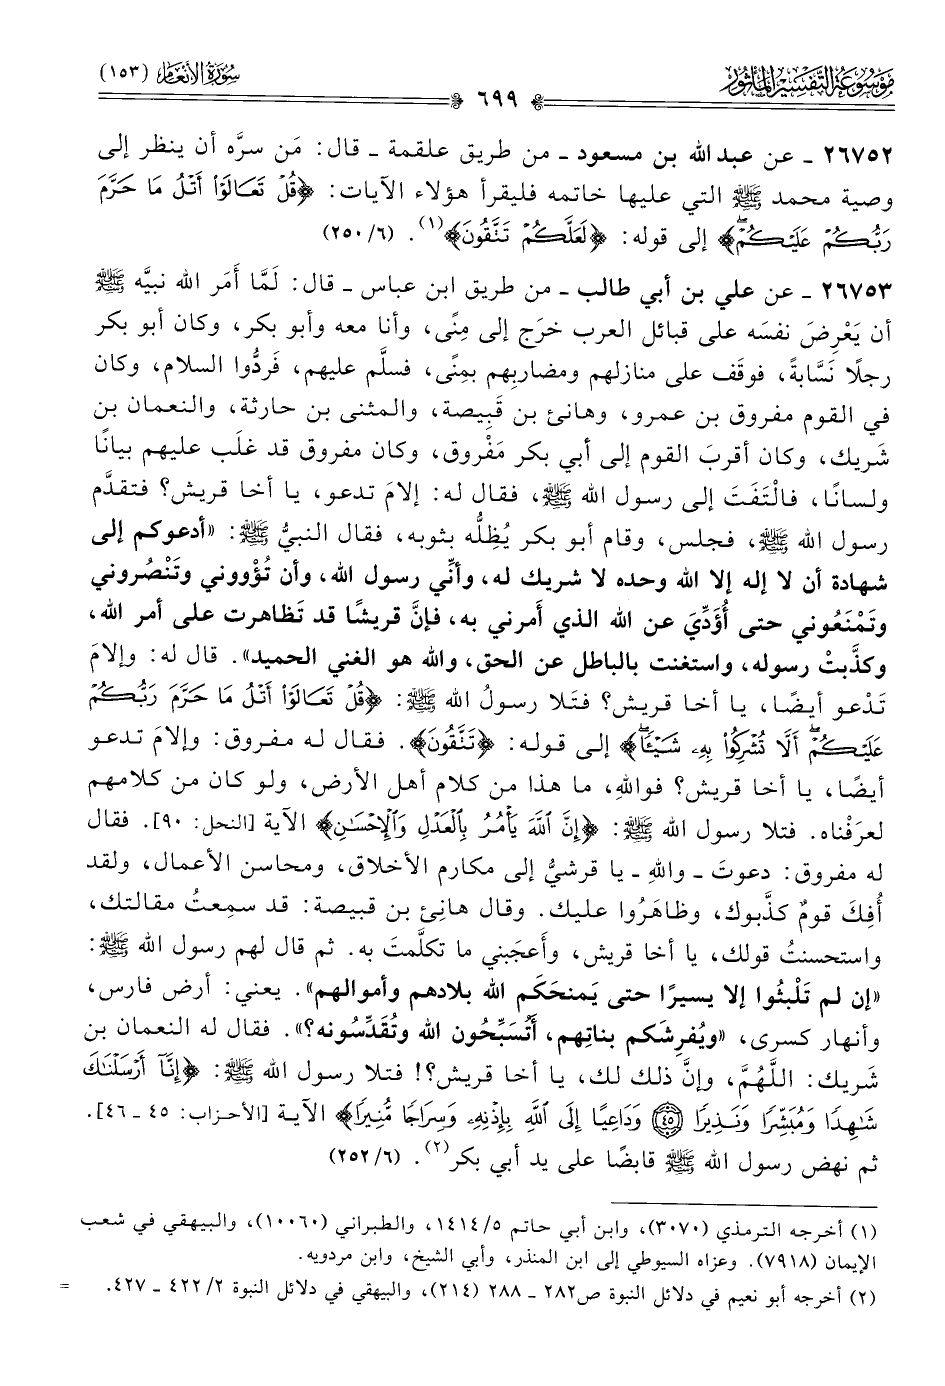 موسوعة التفسير المأثور
٦٩٩
سورة الأنعام (١٥٣)
٢٦٧٥٢ ـ عن عبد الله بن مسعود ـ من طريق علقمة ـ قال: مَن سرَّه أن ينظر إلى
وصية محمد ﷺ التي عليها خاتمه فليقرأ هؤلاء الآيات: ﴿قُلْ تَعَالَوْا۟ أَتْلُ مَا حَرَّمَ
رَبُّكُمْ عَلَيْكُمْ﴾ إلى قوله: ﴿لَعَلَّكُمْ تَتَّقُونَ﴾(١). (٦/ ٢٥٠)
٢٦٧٥٣ ـ عن علي بن أبي طالب ـ من طريق ابن عباس ـ قال: لَمَّا أَمَر الله نبيَّه ﷺ
أن يَعْرِضَ نفسَه على قبائل العرب خرَج إلى مِنًى، وأنا معه وأبو بكر، وكان أبو بكر
رجلًا نَسَّابةً، فوقَف على منازلهم ومضاربِهم بمِنًى، فسلَّم عليهم، فَردُّوا السلام، وكان
في القوم مفروق بن عمرو، وهانئ بن قَبِيصة، والمثنى بن حارثة، والنعمان بن
شَريك، وكان أقربَ القوم إلى أبي بكر مَفْروق، وكان مفروق قد غلَب عليهم بيانًا
ولسانًا، فالْتَفَتَ إلى رسول الله ﷺ، فقال له: إلامَ تدعو، يا أخا قريش؟ فتقدَّم
رسول الله ﷺ، فجلس، وقام أبو بكر يُظِلُّه بثوبه، فقال النبيُّ ﷺ: «أدعوكم إلى
شهادة أن لا إله إلا الله وحده لا شريك له، وأنِّي رسول الله، وأن تُؤْووني وتَنْصُروني
وتَمْنَعُوني حتى أُؤَدِّيَ عن الله الذي أَمرني به، فإنَّ قريشًا قد تَظاهرت على أمر الله،
وكذَّبتْ رسوله، واستغنت بالباطل عن الحق، والله هو الغني الحميد». قال له: وإلامَ
تَدْعو أيضًا، يا أخا قريش؟ فتَلا رسولُ الله ﷺ: ﴿قُلْ تَعَالَوْا۟ أَتْلُ مَا حَرَّمَ رَبُّكُمْ
عَلَيْكُمْ أَلَّا تُشْرِكُوا۟ بِهِۦ شَيْـًٔا﴾ إلى قوله: ﴿تَتَّقُونَ﴾. فقال له مفروق: وإلامَ تدعو
أيضًا، يا أخا قريش؟ فواللهِ، ما هذا من كلام أهل الأرض، ولو كان من كلامهم
لعرَفْناه. فتلا رسول الله ﷺ: ﴿إِنَّ ٱللَّهَ يَأْمُرُ بِٱلْعَدْلِ وَٱلْإِحْسَـٰنِ﴾ الآية [النحل: ٩٠]. فقال
له مفروق: دعوتَ ـ واللهِ ـ يا قرشيُّ إلى مكارم الأخلاق، ومحاسن الأعمال، ولقد
أُفِكَ قومٌ كذَّبوك، وظاهَرُوا عليك. وقال هانئ بن قبيصة: قد سمِعتُ مقالتك،
واستحسنتُ قولك، يا أخا قريش، وأَعجَبني ما تكلَّمتَ به. ثم قال لهم رسول الله ﷺ:
«إن لم تَلْبثُوا إلا يسيرًا حتى يَمنحَكم الله بلادهم وأموالهم». يعني: أرض فارس،
وأنهار كسرى، «ويُفرِشكم بناتِهم، أتُسَبِّحُون الله وتُقدِّسُونه؟». فقال له النعمان بن
شَريك: اللَّهُمَّ، وإنَّ ذلك لك، يا أخا قريش؟! فتلا رسول الله ﷺ: ﴿إِنَّآ أَرْسَلْنَـٰكَ
شَـٰهِدًا وَمُبَشِّرًا وَنَذِيرًا ۝٤٥ وَدَاعِيًا إِلَى ٱللَّهِ بِإِذْنِهِۦ وَسِرَاجًا مُّنِيرًا﴾ الآية [الأحزاب: ٤٥ ـ ٤٦].
ثم نهض رسول الله ﷺ قابضًا على يد أبي بكر(٢). (٦/ ٢٥٢)
(١) أخرجه الترمذي (٣٠٧٠)، وابن أبي حاتم ٥/ ١٤١٤، والطبراني (١٠٠٦٠)، والبيهقي في شعب
الإيمان (٧٩١٨). وعزاه السيوطي إلى ابن المنذر، وأبي الشيخ، وابن مردويه.
(٢) أخرجه أبو نعيم في دلائل النبوة ص٢٨٢ ـ ٢٨٨ (٢١٤)، والبيهقي في دلائل النبوة ٢/ ٤٢٢ ـ ٤٢٧. =